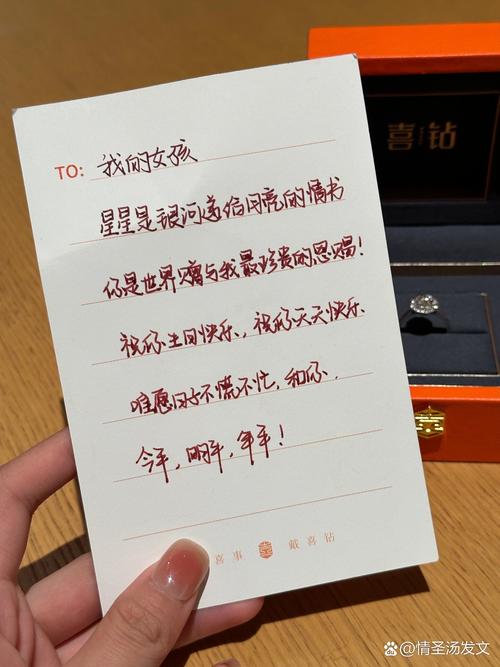 喜钻
TO: 我的女孩
星星是银河递给月亮的情书
你是世界赠与我最珍贵的恩赐！
祝你生日快乐，祝你天天快乐
唯愿日子不慌不忙，和你，
今年，明年，年年！
喜事 戴喜钻
情圣汤发文